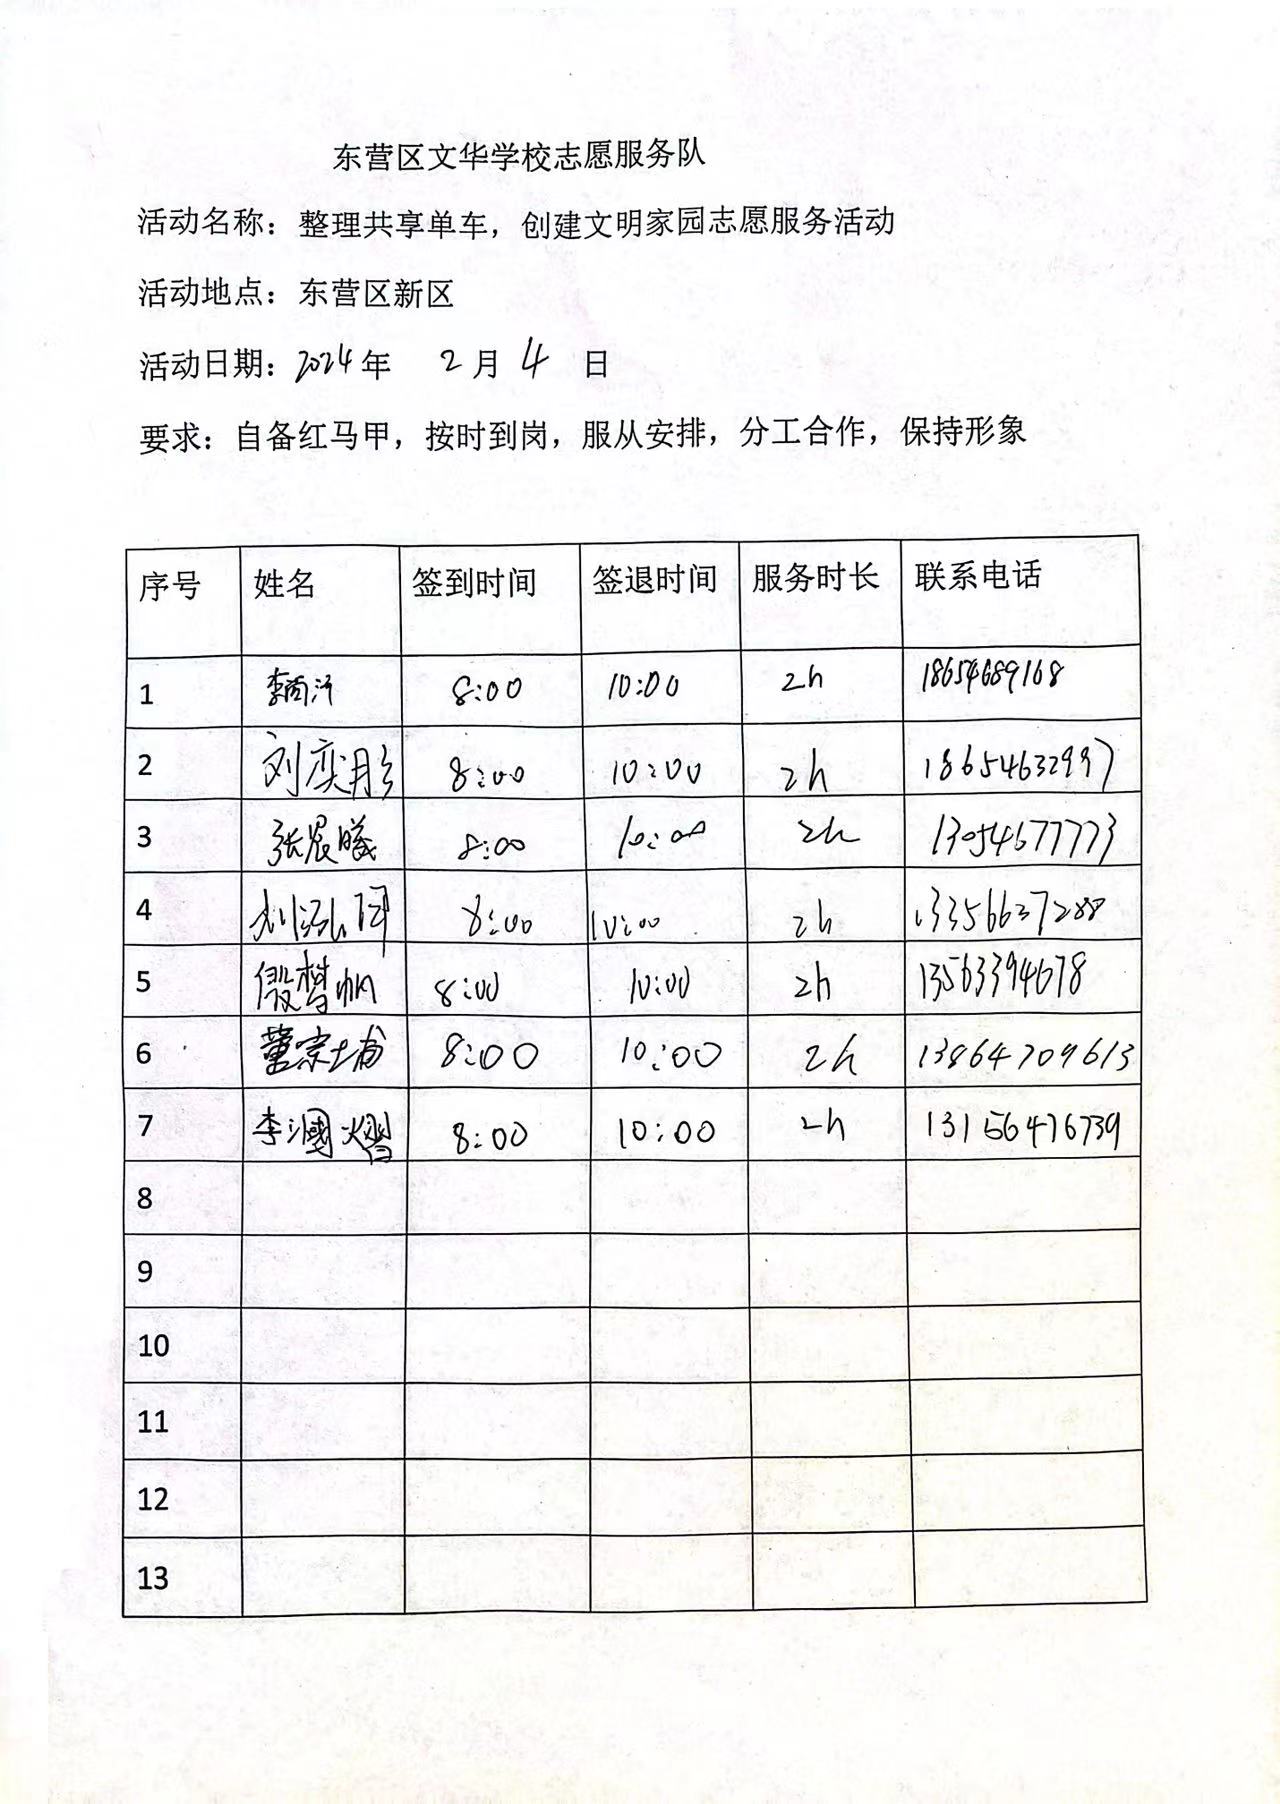 东营区文华学校志愿服务队
活动名称：整理共享单车，创建文明家园志愿服务活动
活动地点：东营区新区
活动日期：2024年 2月 4 日
要求：自备红马甲，按时到岗，服从安排，分工合作，保持形象
序号 姓名 签到时间 签退时间 服务时长 联系电话
1 8:00 10:00 2h 18654689168
2 刘奕彤 8:00 10:00 2h 18654632997
3 张晨曦 8:00 10:00 2h 13054677773
4 8:00 10:00 2h 13356637288
5 殷梦帆 8:00 10:00 2h 13563394678
6 董宗埔 8:00 10:00 2h 13864709613
7 李 8:00 10:00 2h 13156476739
8
9
10
11
12
13